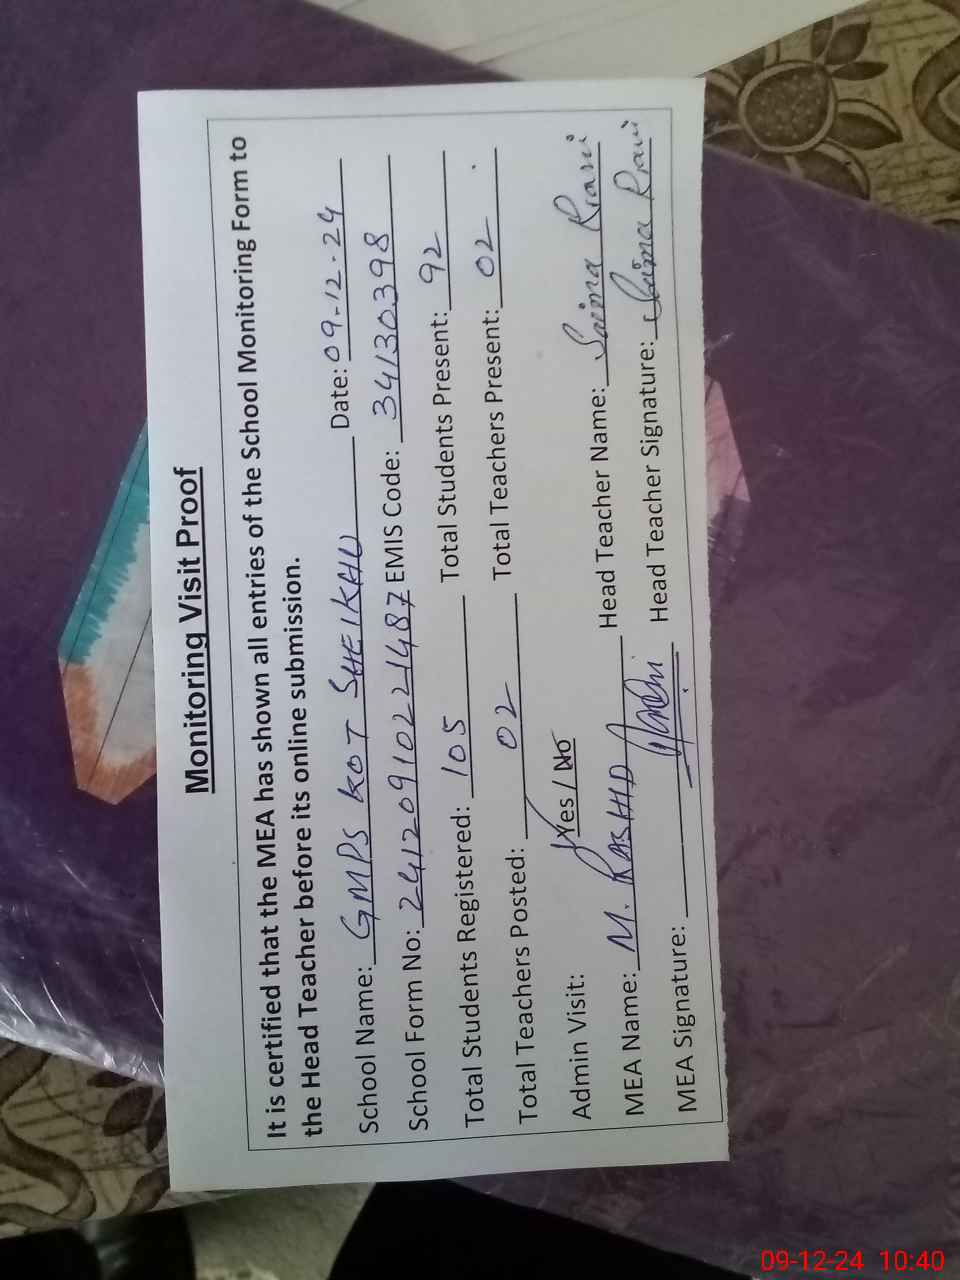 Monitoring Visit Proof
It is certified that the MEA has shown all entries of the School Monitoring Form to
the Head Teacher before its online submission.
School Name: GMPS KOT SHEIKHU Date: 09-12-24
School Form No: 24120910221487 EMIS Code: 34130398
Total Students Registered: 105 Total Students Present: 92
Total Teachers Posted: 02 Total Teachers Present: 02
Admin Visit: Yes / No
MEA Name: M. RASHID Head Teacher Name: Saima Rani
MEA Signature: Head Teacher Signature: Saima Rani
09-12-24 10:40